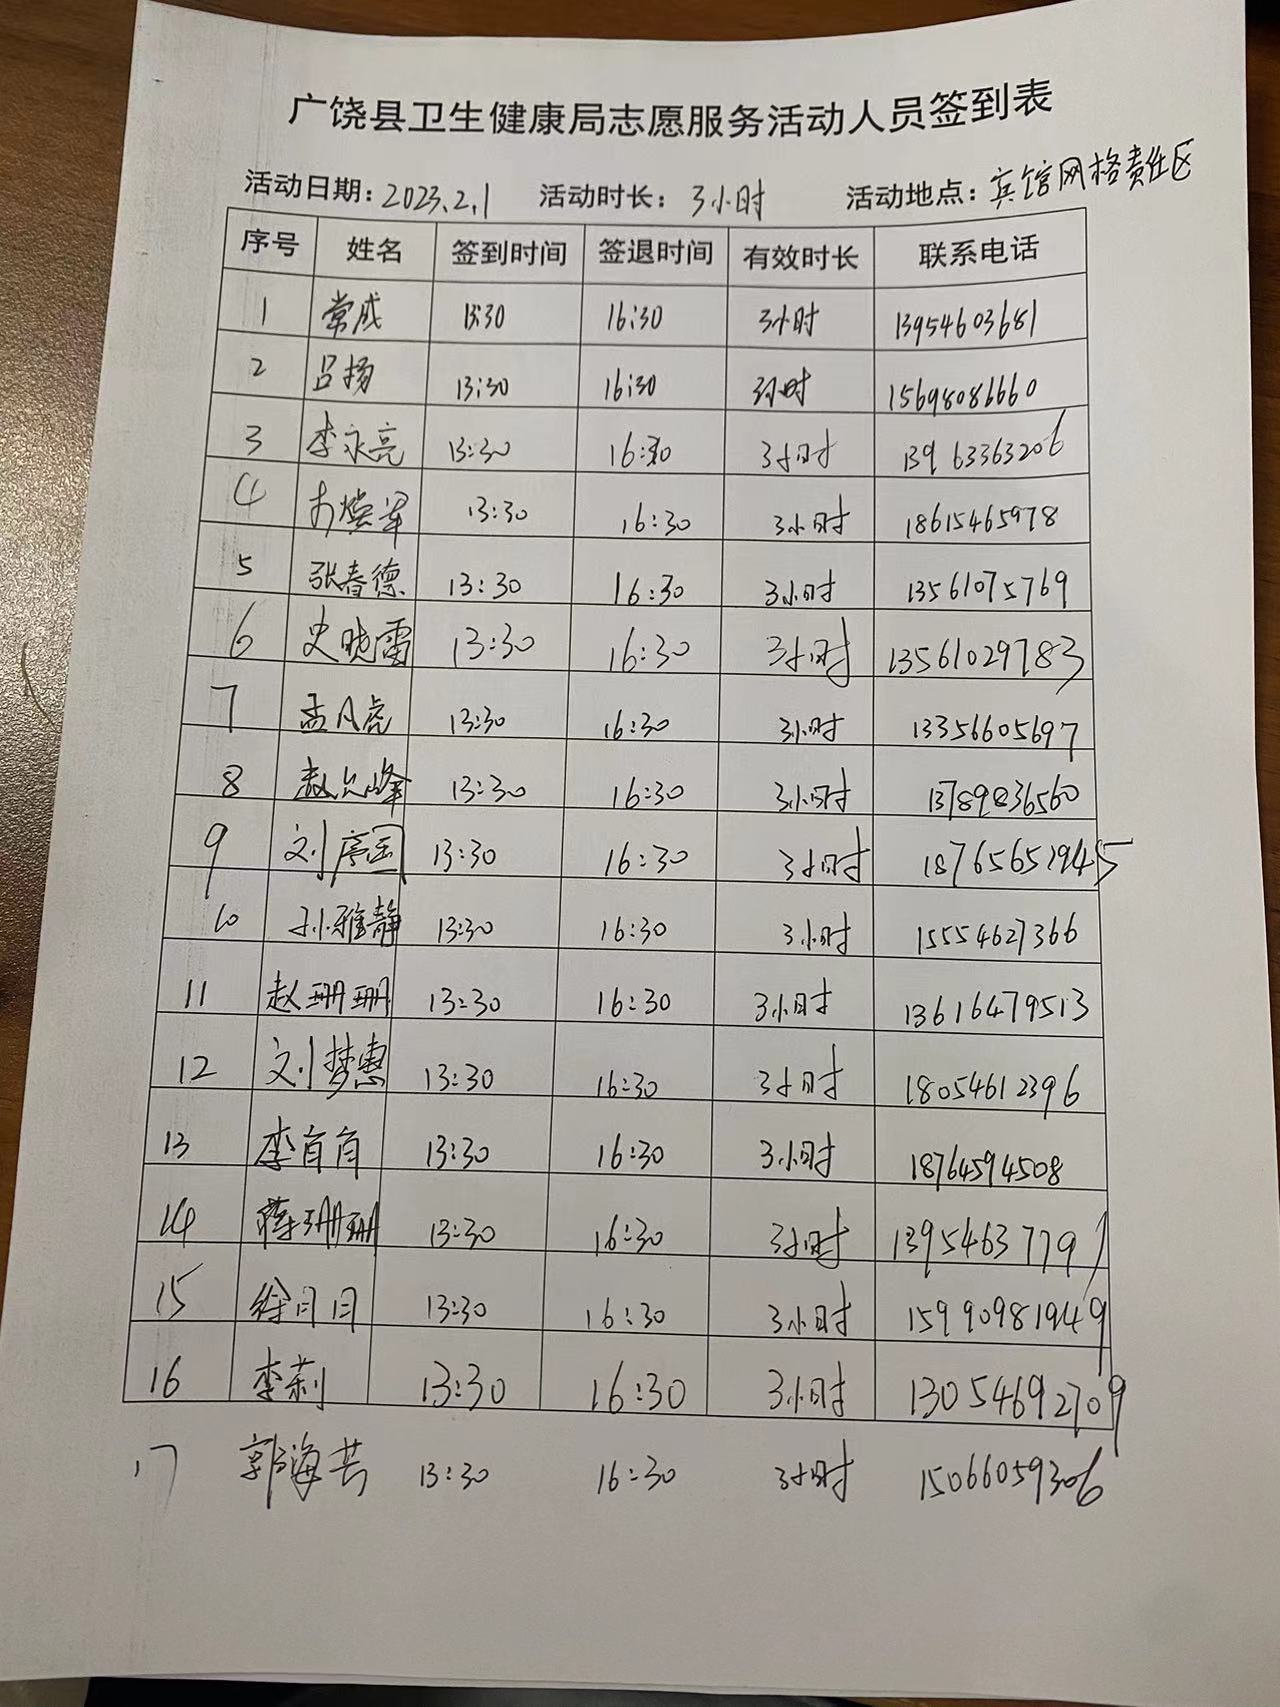 广饶县卫生健康局志愿服务活动人员签到表
活动日期：2023.2.1 活动时长：3小时 活动地点：宾馆网格责任区
序号 姓名 签到时间 签退时间 有效时长 联系电话
1 常成 13:30 16:30 3小时 13954603681
2 吕扬 13:30 16:30 3小时 15698086660
3 李永亮 13:30 16:30 3小时 13963363206
4 13:30 16:30 3小时 18615465978
5 张春德 13:30 16:30 3小时 13561075769
6 史晓雷 13:30 16:30 3小时 13561029783
7 孟凡虎 13:30 16:30 3小时 13356605697
8 13:30 16:30 3小时 13789836560
9 刘 13:30 16:30 3小时 18765652945
10 孙雅静 13:30 16:30 3小时 15554627366
11 赵珊珊 13:30 16:30 3小时 13616479513
12 刘梦惠 13:30 16:30 3小时 18054612396
13 李肖肖 13:30 16:30 3小时 18764594508
14 蒋珊珊 13:30 16:30 3小时 13954637791
15 徐月月 13:30 16:30 3小时 15990981949
16 李莉 13:30 16:30 3小时 13054692709
17 郭海芸 13:30 16:30 3小时 15066059306